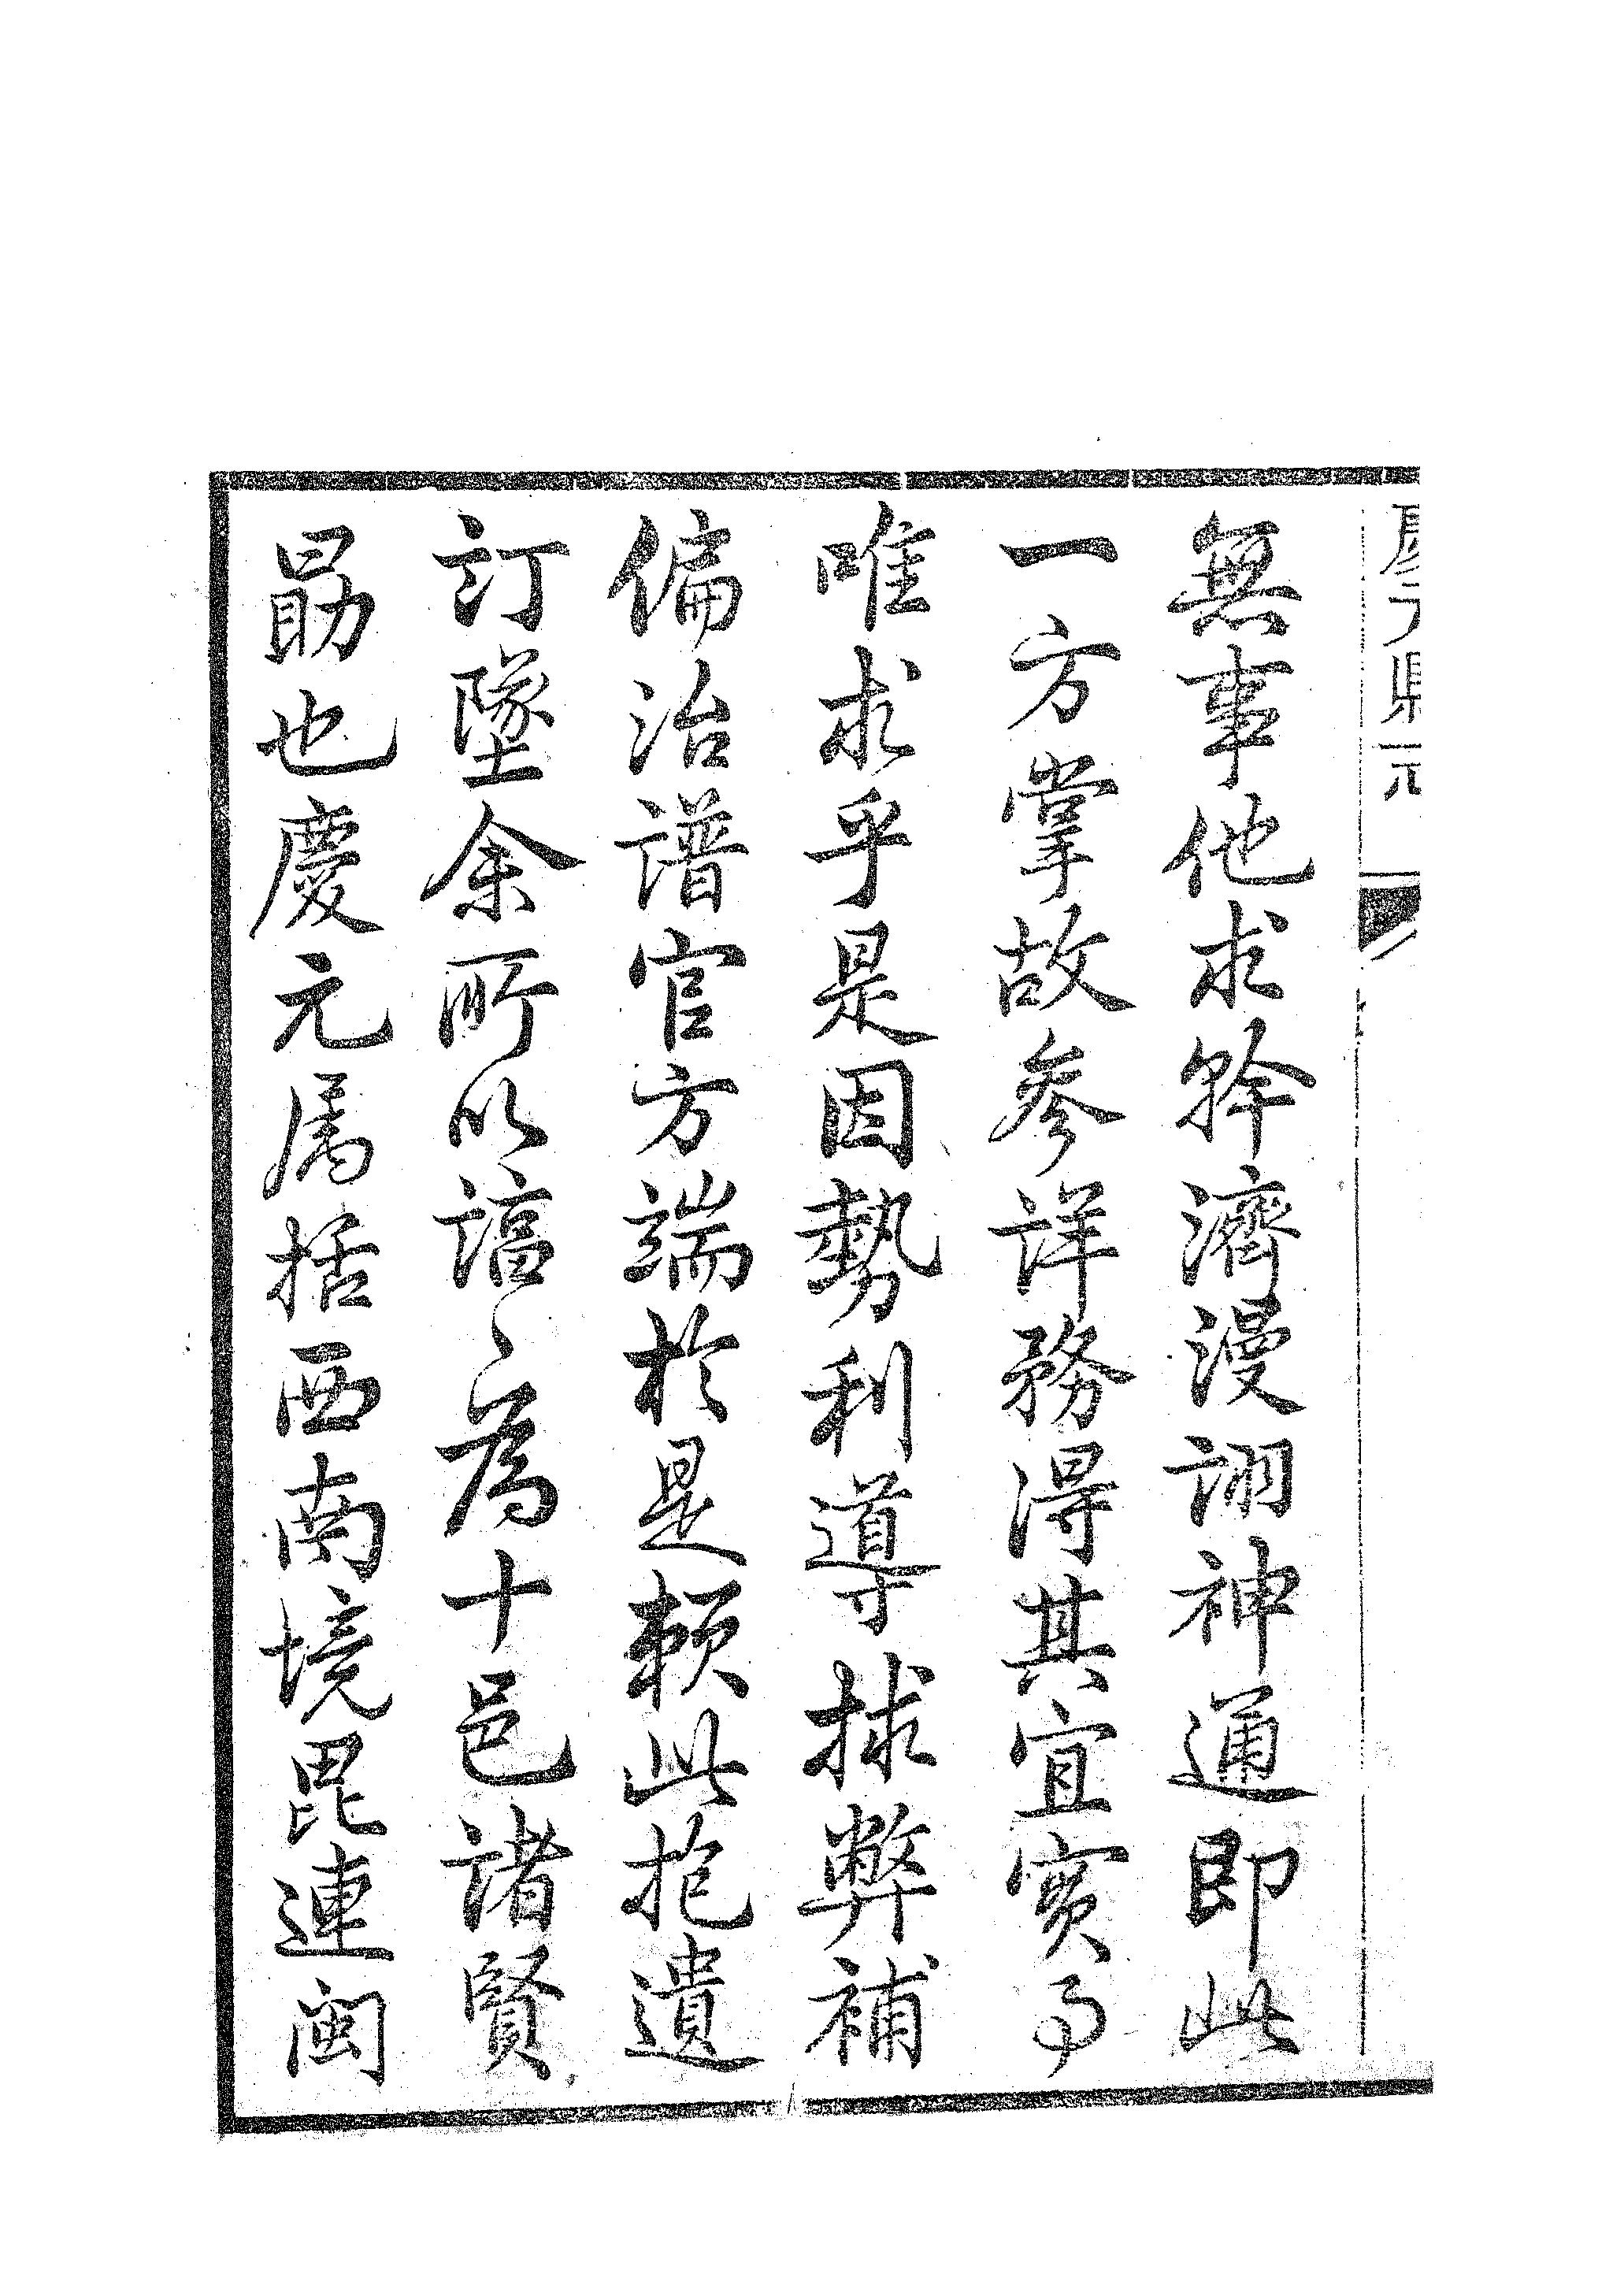 無事他求幹濟漫詡神通即此
一方掌故參詳務得其宜實事
唯求乎是因勢利導捄弊補
偏治譜官方端於是賴此抱遺
訂墜余所以諄〻為十邑諸賢
勗也慶元属括西南境毘連閩